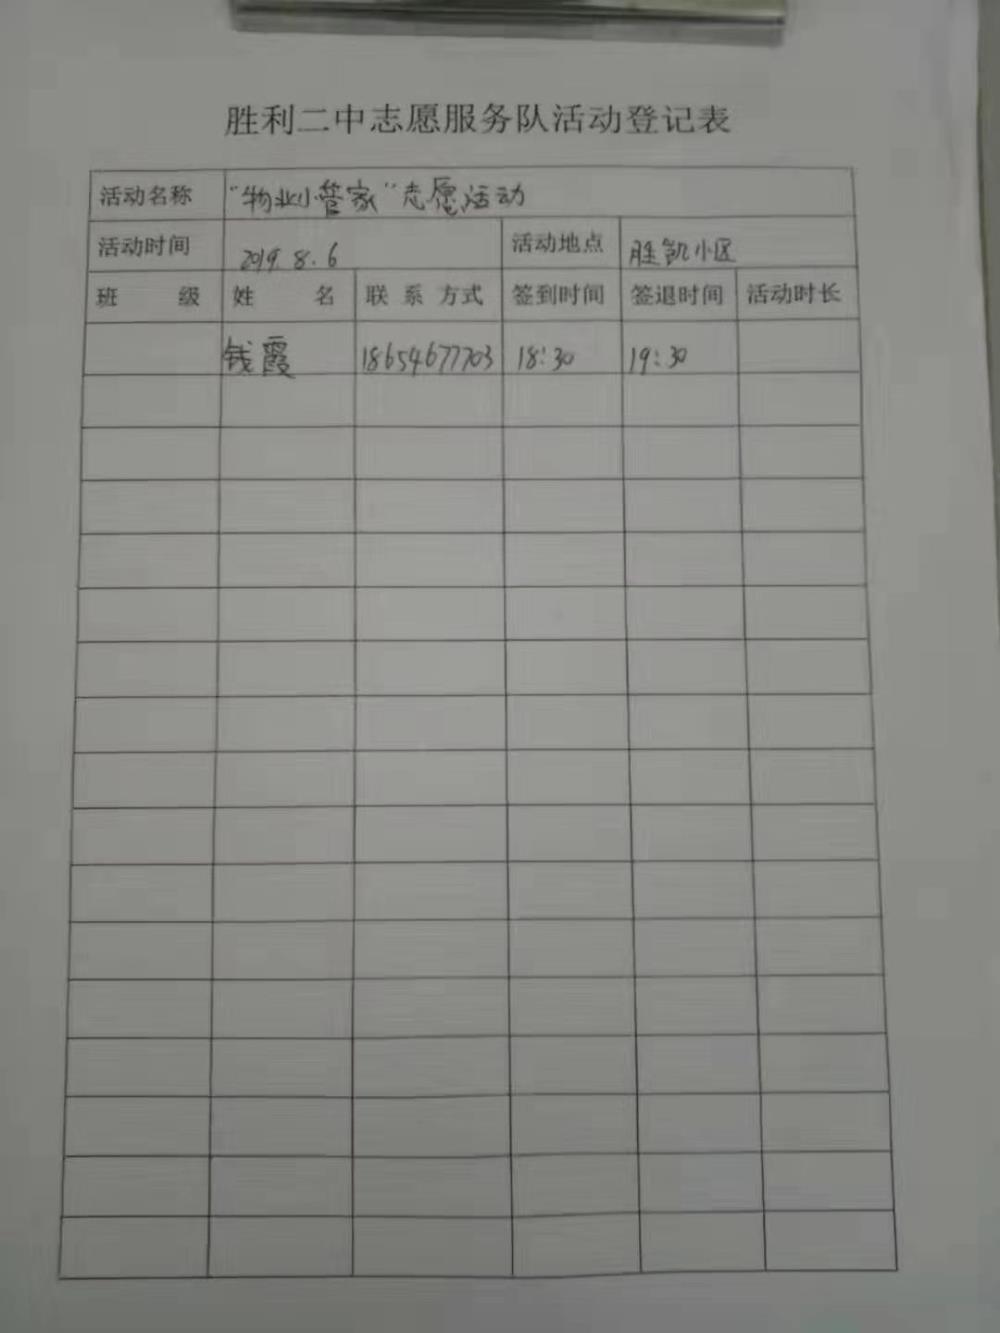 胜利二中志愿服务队活动登记表
活动名称 "物业小管家"志愿活动
活动时间 2019.8.6 活动地点 胜凯小区
班 级 姓 名 联 系 方式 签到时间 签退时间 活动时长
钱霞 18654677703 18:30 19:30